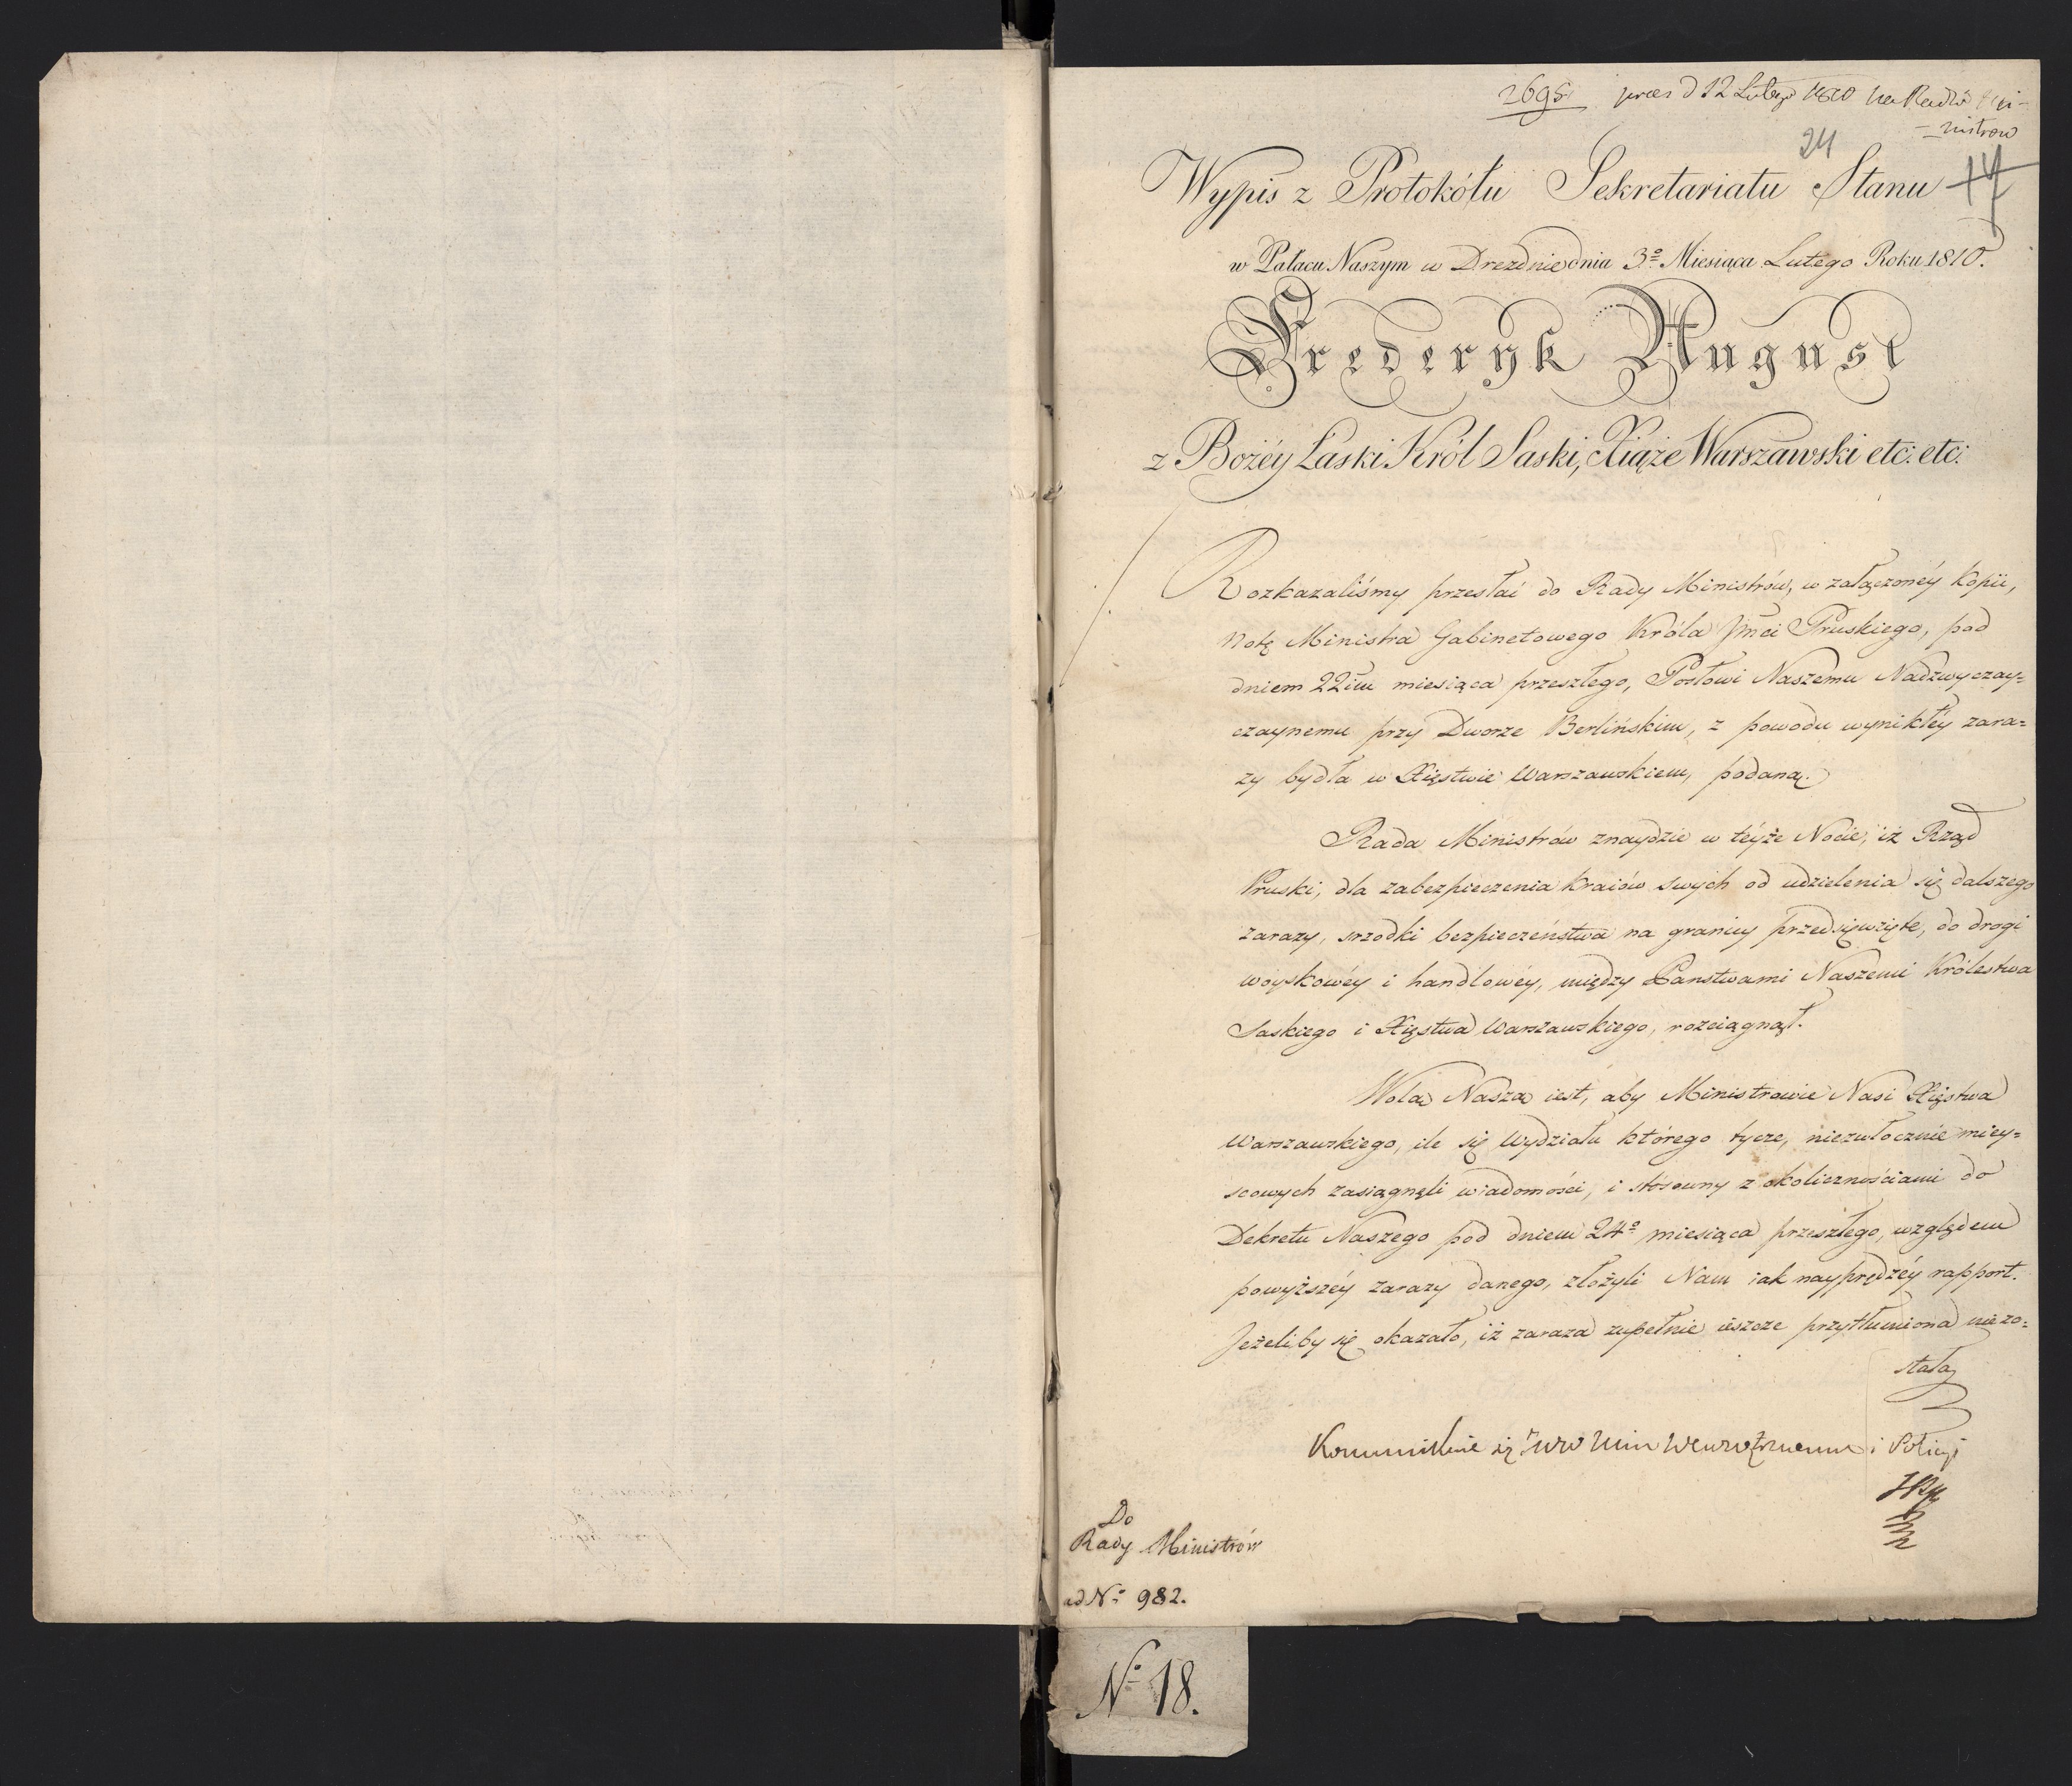 2695 prees d 12 Lutego 1810 na Radzie Mi-
-nistrow
24
Wypis z Protokółu Sekretariatu Stanu 17
w Pałacu Naszym w Dreznie dnia 3º Miesiąca Lutego Roku 1810.
Frederyk August
z Bożéy Łaski Król Saski, Xiąże Warszawski etc: etc:
Rozkazaliśmy przesłać do Rady Ministrów, w załączonéy kopii,
notę Ministra Gabinetowego Króla Jmci Pruskiego, pod
dniem 22im miesiąca przeszłego, Posłowi Naszemu Nadzwyczay=
czaynemu przy Dworze Berlińskim, z powodu wynikłéy zara=
zy bydła w Xięstwie Warszawskiem, podaną.
Rada Ministrów znaydzie w téyże Nocie, iż Rząd
Pruski, dla zabezpieczenia kraiów swych od udzielenia się dalszego
zarazy, srzodki bezpieczeństwa na granicy przedsięwzięte, do drogi
woyskowéy i handlowéy, między Państwami Naszemi Królestwa
Saskiego i Xięstwa Warszawskiego, rozciągnął.
Wola Nasza iest, aby Ministrowie Nasi Xięstwa
Warszawskiego, ile się Wydziału którego tycze, niezwłocznie miey=
scowych zasiągnęli wiadomości, i stósowny z okolicznościami do
Dekretu Naszego pod dniem 24º miesiąca przeszłego, względem
powyższéy zarazy danego, złożyli Nam iak nayprędzéy rapport.
Jeżeliby się okazało, iż zaraza zupełnie ieszcze przytłumiona nie zo=
stała,
Kommunikuie się JWW Min Wewnętrznemu i Policyi
Do
Rady Ministrów
ad Nº 982.
Nº 18.